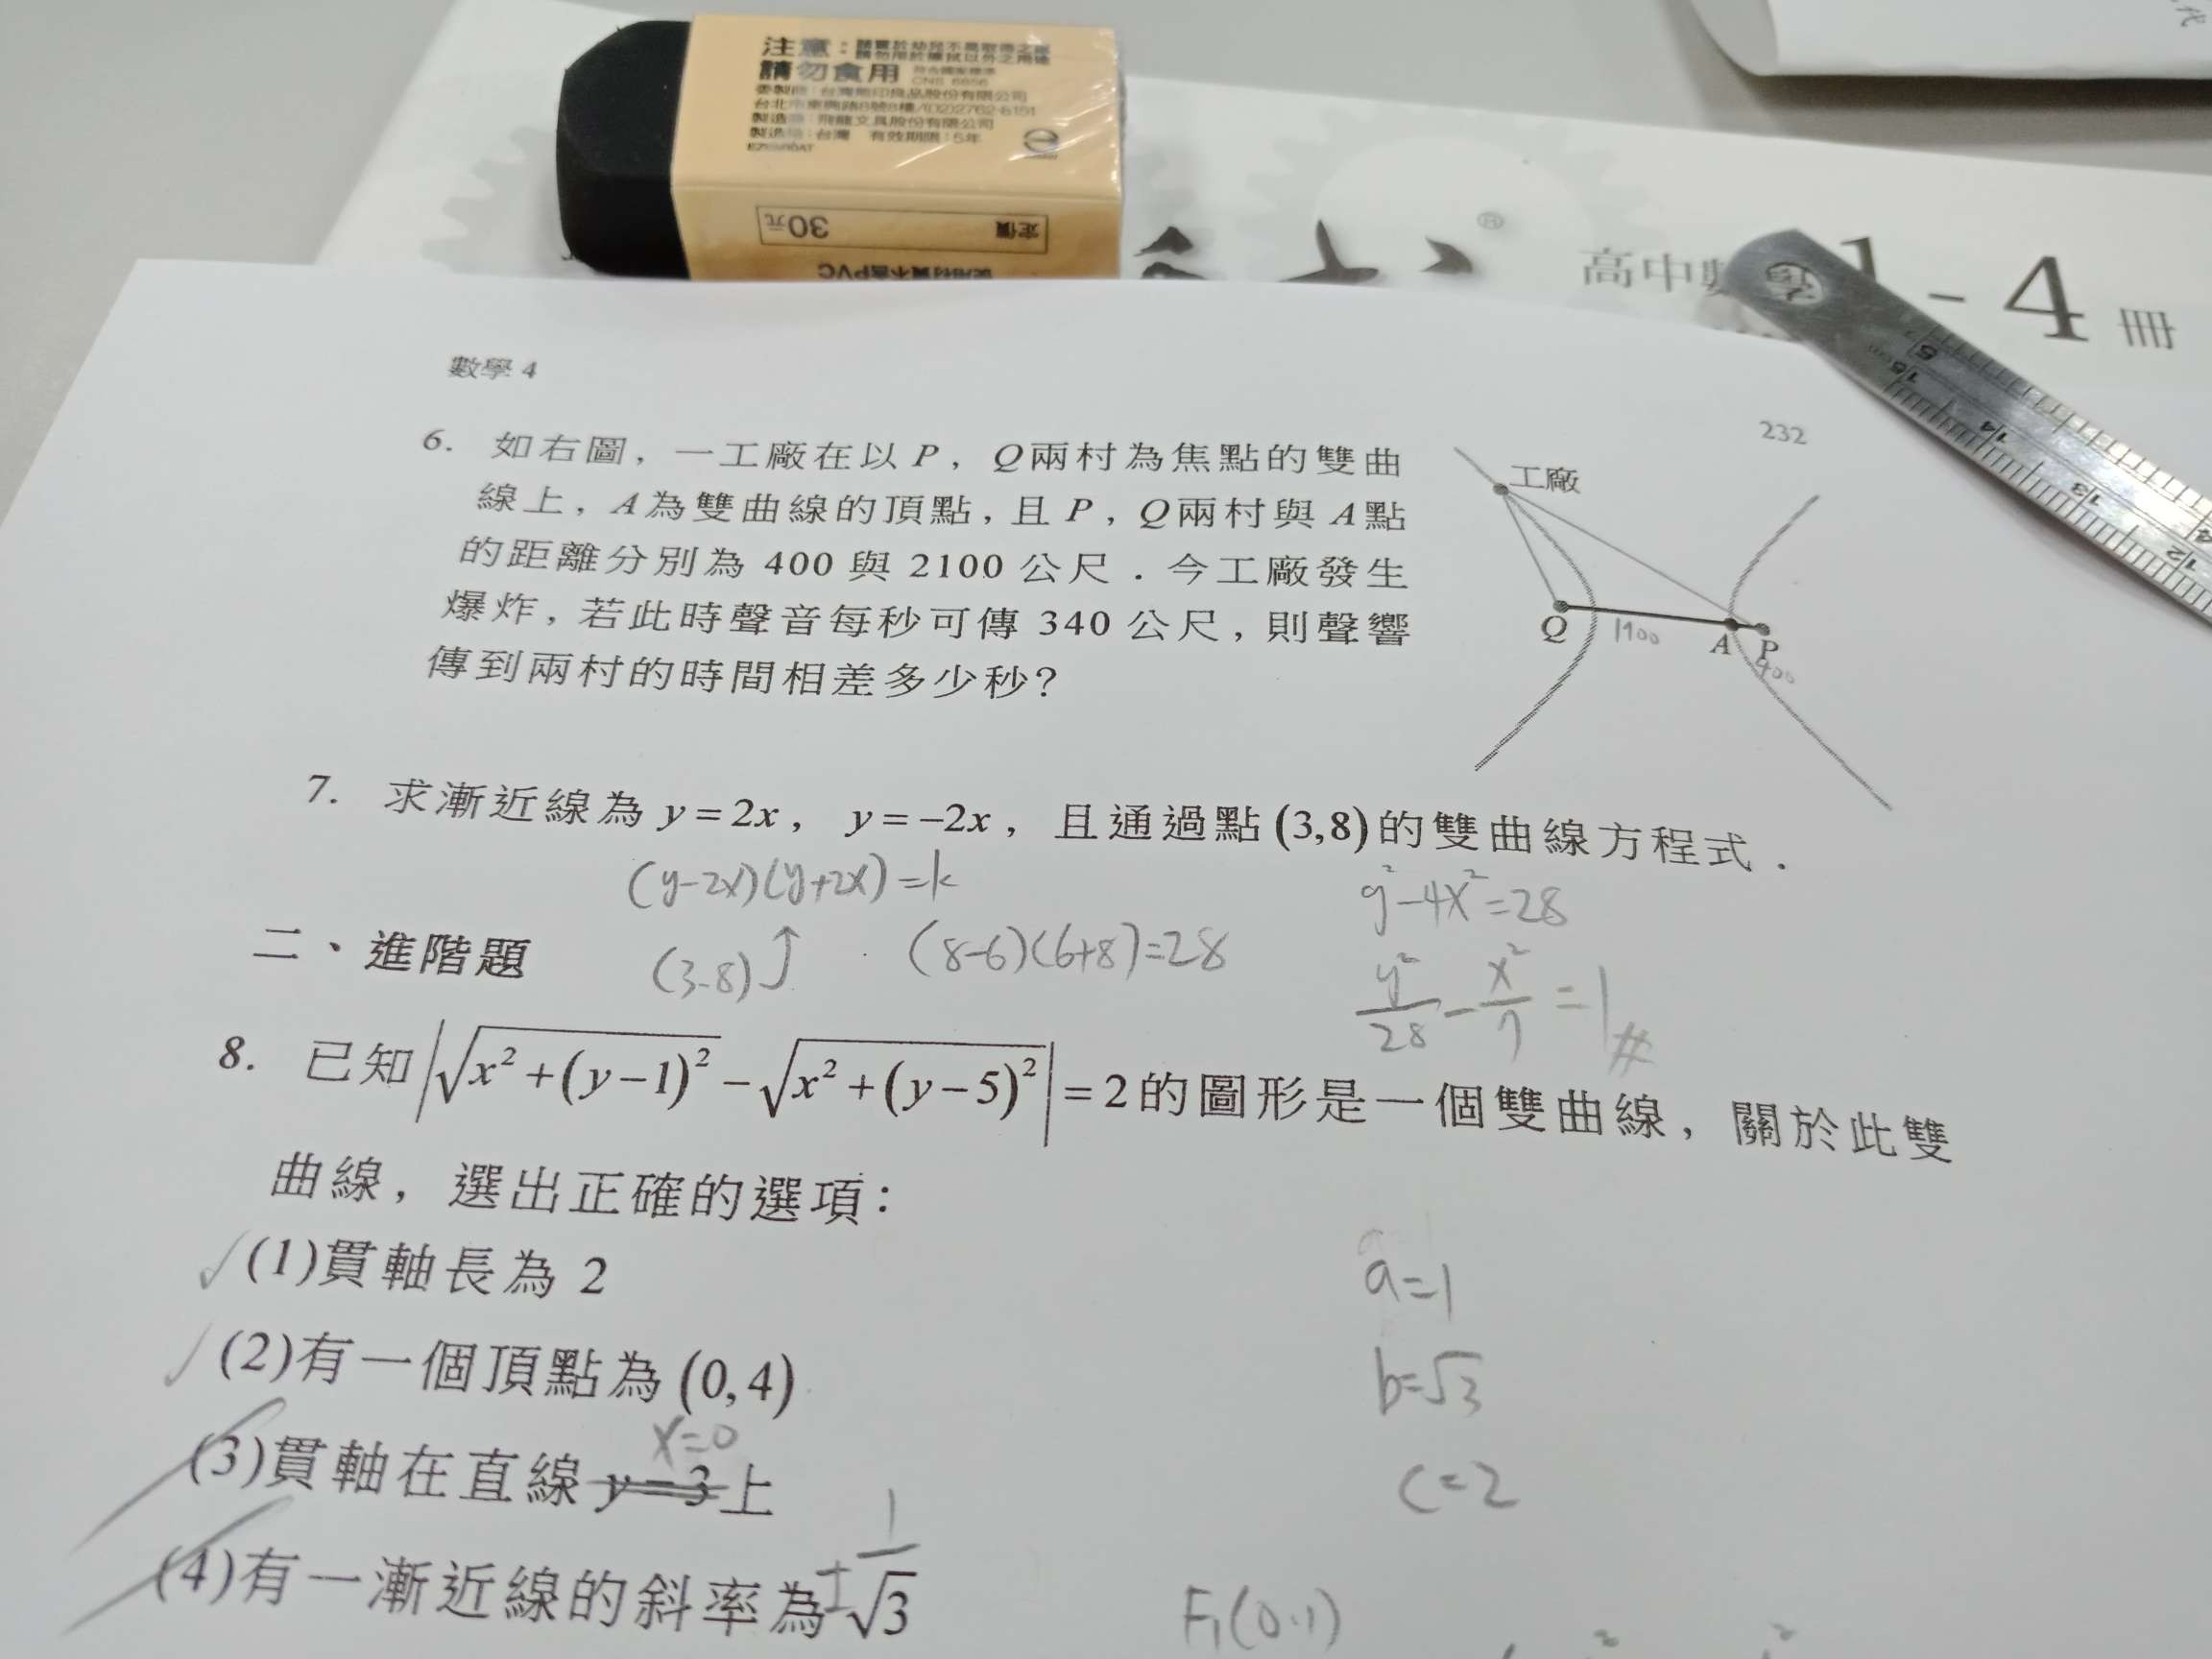 注意：
請勿食用
CNS 6856
製造商：飛龍文具股份有限公司
製造地：台灣 有效期限：5年
定價 30元
®
高中數 1-4 冊
數學 4
232
6. 如右圖，一工廠在以 P，Q兩村為焦點的雙曲
線上，A為雙曲線的頂點，且 P，Q兩村與 A點
的距離分別為 400 與 2100 公尺．今工廠發生
爆炸，若此時聲音每秒可傳 340 公尺，則聲響
傳到兩村的時間相差多少秒?
工廠
Q 1900 A P
400
7. 求漸近線為 y=2x， y=−2x，且通過點(3,8)的雙曲線方程式．
(y-2x)(y+2x)=k
y²-4x²=28
(3-8)↑ (8-6)(6+8)=28
y²/28 - x²/7 =1 #
二、進階題
8. 已知|√(x²+(y−1)²)−√(x²+(y−5)²)|=2的圖形是一個雙曲線，關於此雙
曲線，選出正確的選項：
✓(1)貫軸長為 2
a=1
✓(2)有一個頂點為(0,4)
b=√3
x=0
(3)貫軸在直線 y=3 上
c=2
(4)有一漸近線的斜率為 ±1/√3
F₁(0.1)